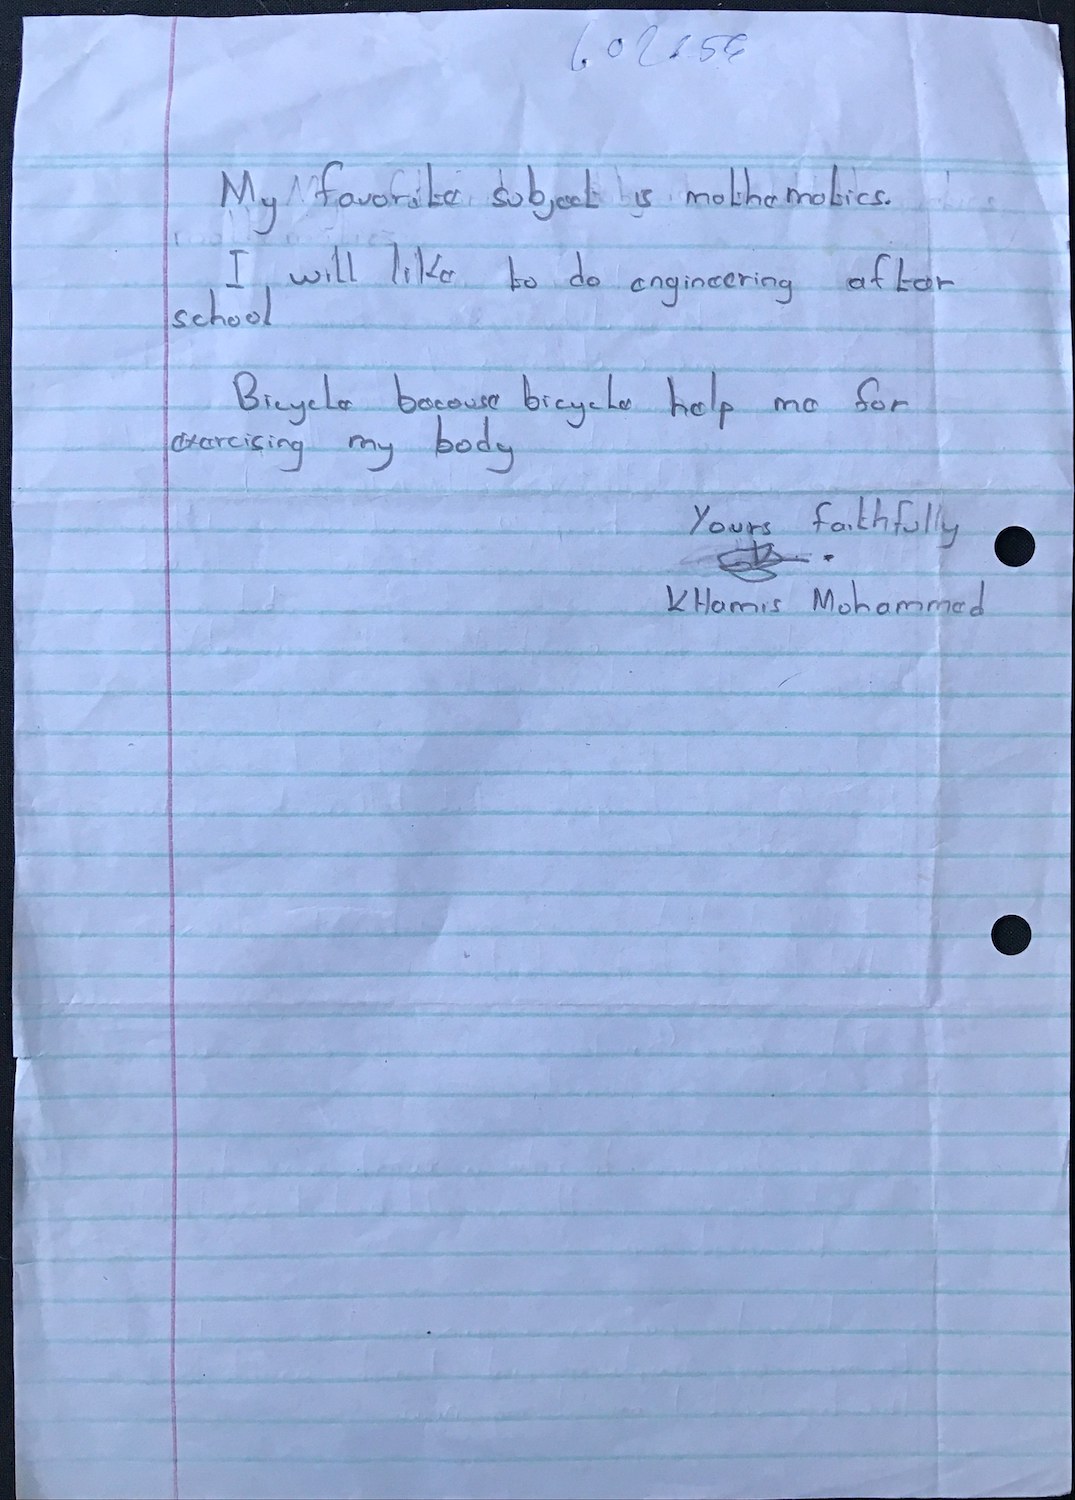 My favorite subject is mathematics.
I will like to do engineering after
school
Bicycle because bicycle help me for
exercising my body
Yours faithfully
KHamis Mohammed